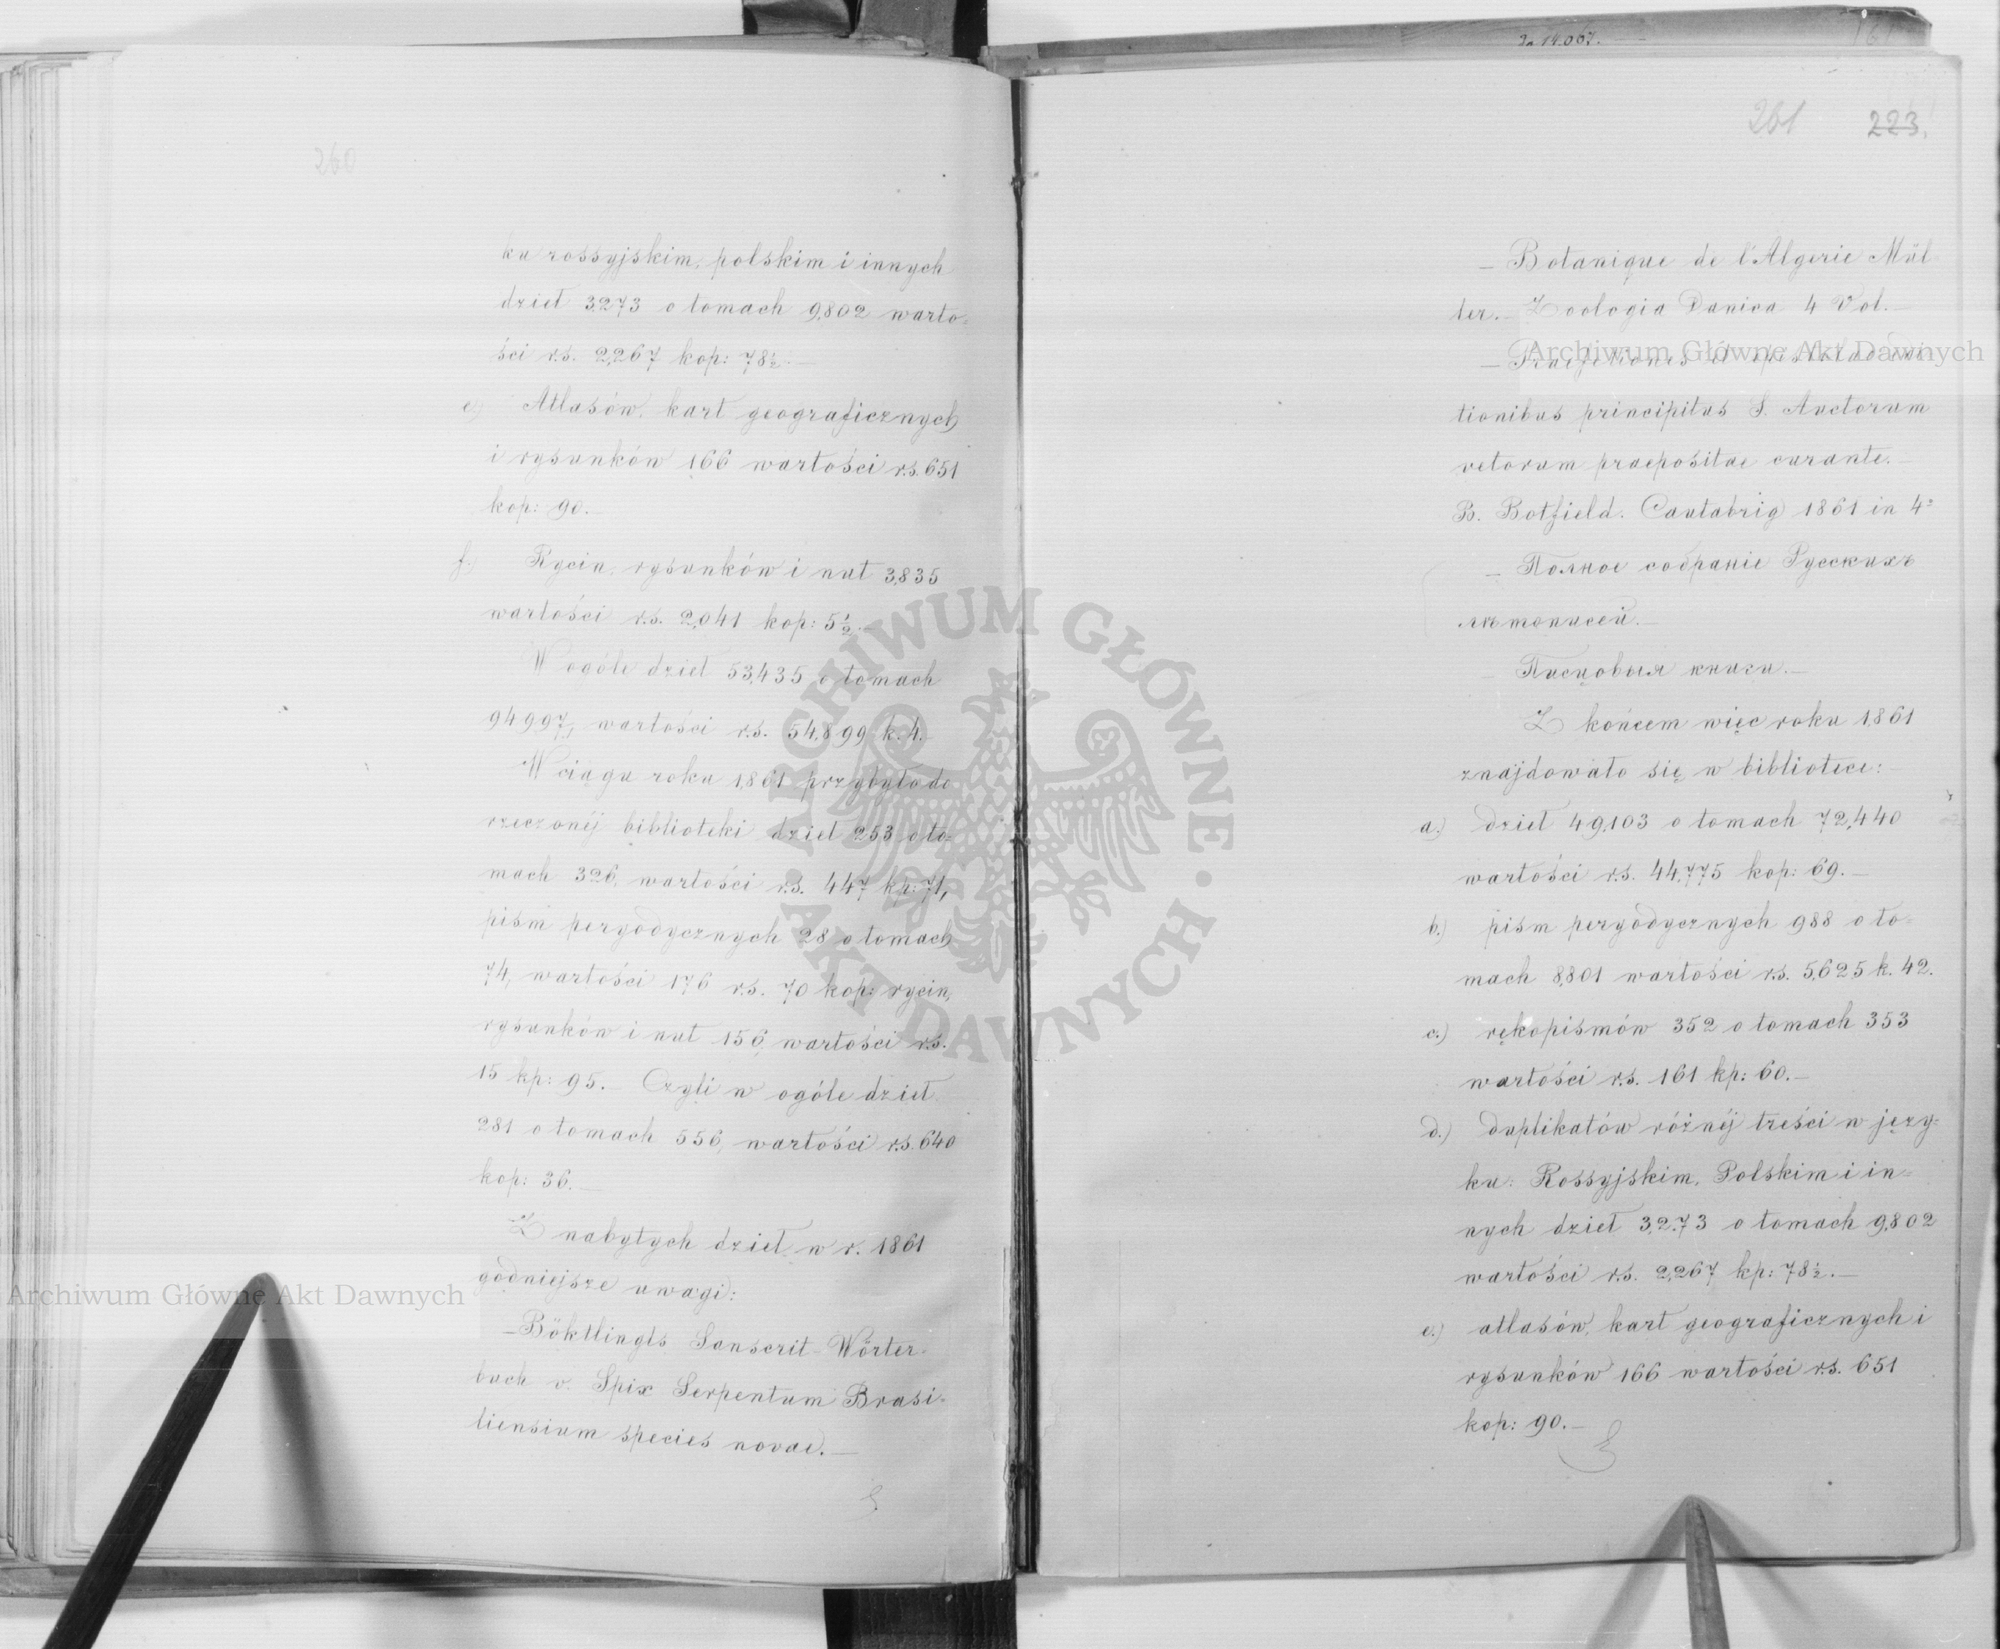 260
ku rossyjskim, polskim i innych
dzieł 3,273 o tomach 9,802 warto-
ści r.s. 2,267 kop: 78½.—
e) Atlasów, kart geograficznych
i rysunków 166 wartości r.s. 651
kop: 90.—
f.) Rycin, rysunków i nut 3,835
wartości r.s. 2,041 kop: 5½.—
W ogóle dzieł 53,435 o tomach
94997, wartości r.s. 54,899 k. 4.—
W ciągu roku 1861 przybyło do
rzeczonéj biblioteki dzieł 253 o to-
mach 326, wartości r.s. 447 kp: 71,
pism peryodycznych 28 o tomach
74, wartości 176 r.s. 70 kop: rycin,
rysunków i nut 156, wartości r.s.
15 kp: 95.— Czyli w ogóle dzieł
281 o tomach 556, wartości r.s. 640
kop: 36.—
Z nabytych dzieł w r. 1861
godniejsze uwagi:
— Böktlingks Sanscrit-Wörter-
buch v. Spix Serpentum Brasi-
liensium species novae.—
261 223.
— Botanique de l'Algerie Mül-
ler.— Zoologia Danica 4 Vol.—
— Praefationes et epistolae edi-
tionibus principibus S. Auctorum
veterum praepositae curante.—
B. Botfield. Cantabrig 1861 in 4°
— Полное собраніе Русскихъ
лѣтописей.—
— Писцовыя книги.—
Z końcem więc roku 1861
znajdowało się w bibliotece:
a.) dzieł 49,103 o tomach 72,440
wartości r.s. 44,775 kop: 69.—
b.) pism peryodycznych 988 o to-
mach 8,801 wartości r.s. 5,625 k. 42.
c.) rękopismów 352 o tomach 353
wartości r.s. 161 kp: 60.—
d.) duplikatów różnéj treści w języ-
ku: Rossyjskim, Polskim i in-
nych dzieł 3,273 o tomach 9,802
wartości r.s. 2,267 kp: 78½.—
e.) atlasów, kart geograficznych i
rysunków 166 wartości r.s. 651
kop: 90.—
Archiwum Główne Akt Dawnych
Archiwum Główne Akt Dawnych
ARCHIWUM GŁÓWNE • AKT DAWNYCH •